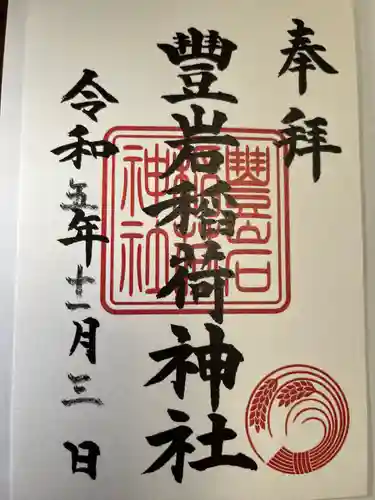 奉拝
豐岩稲荷神社
令和五年十一月三日
豐岩
稲荷
神社